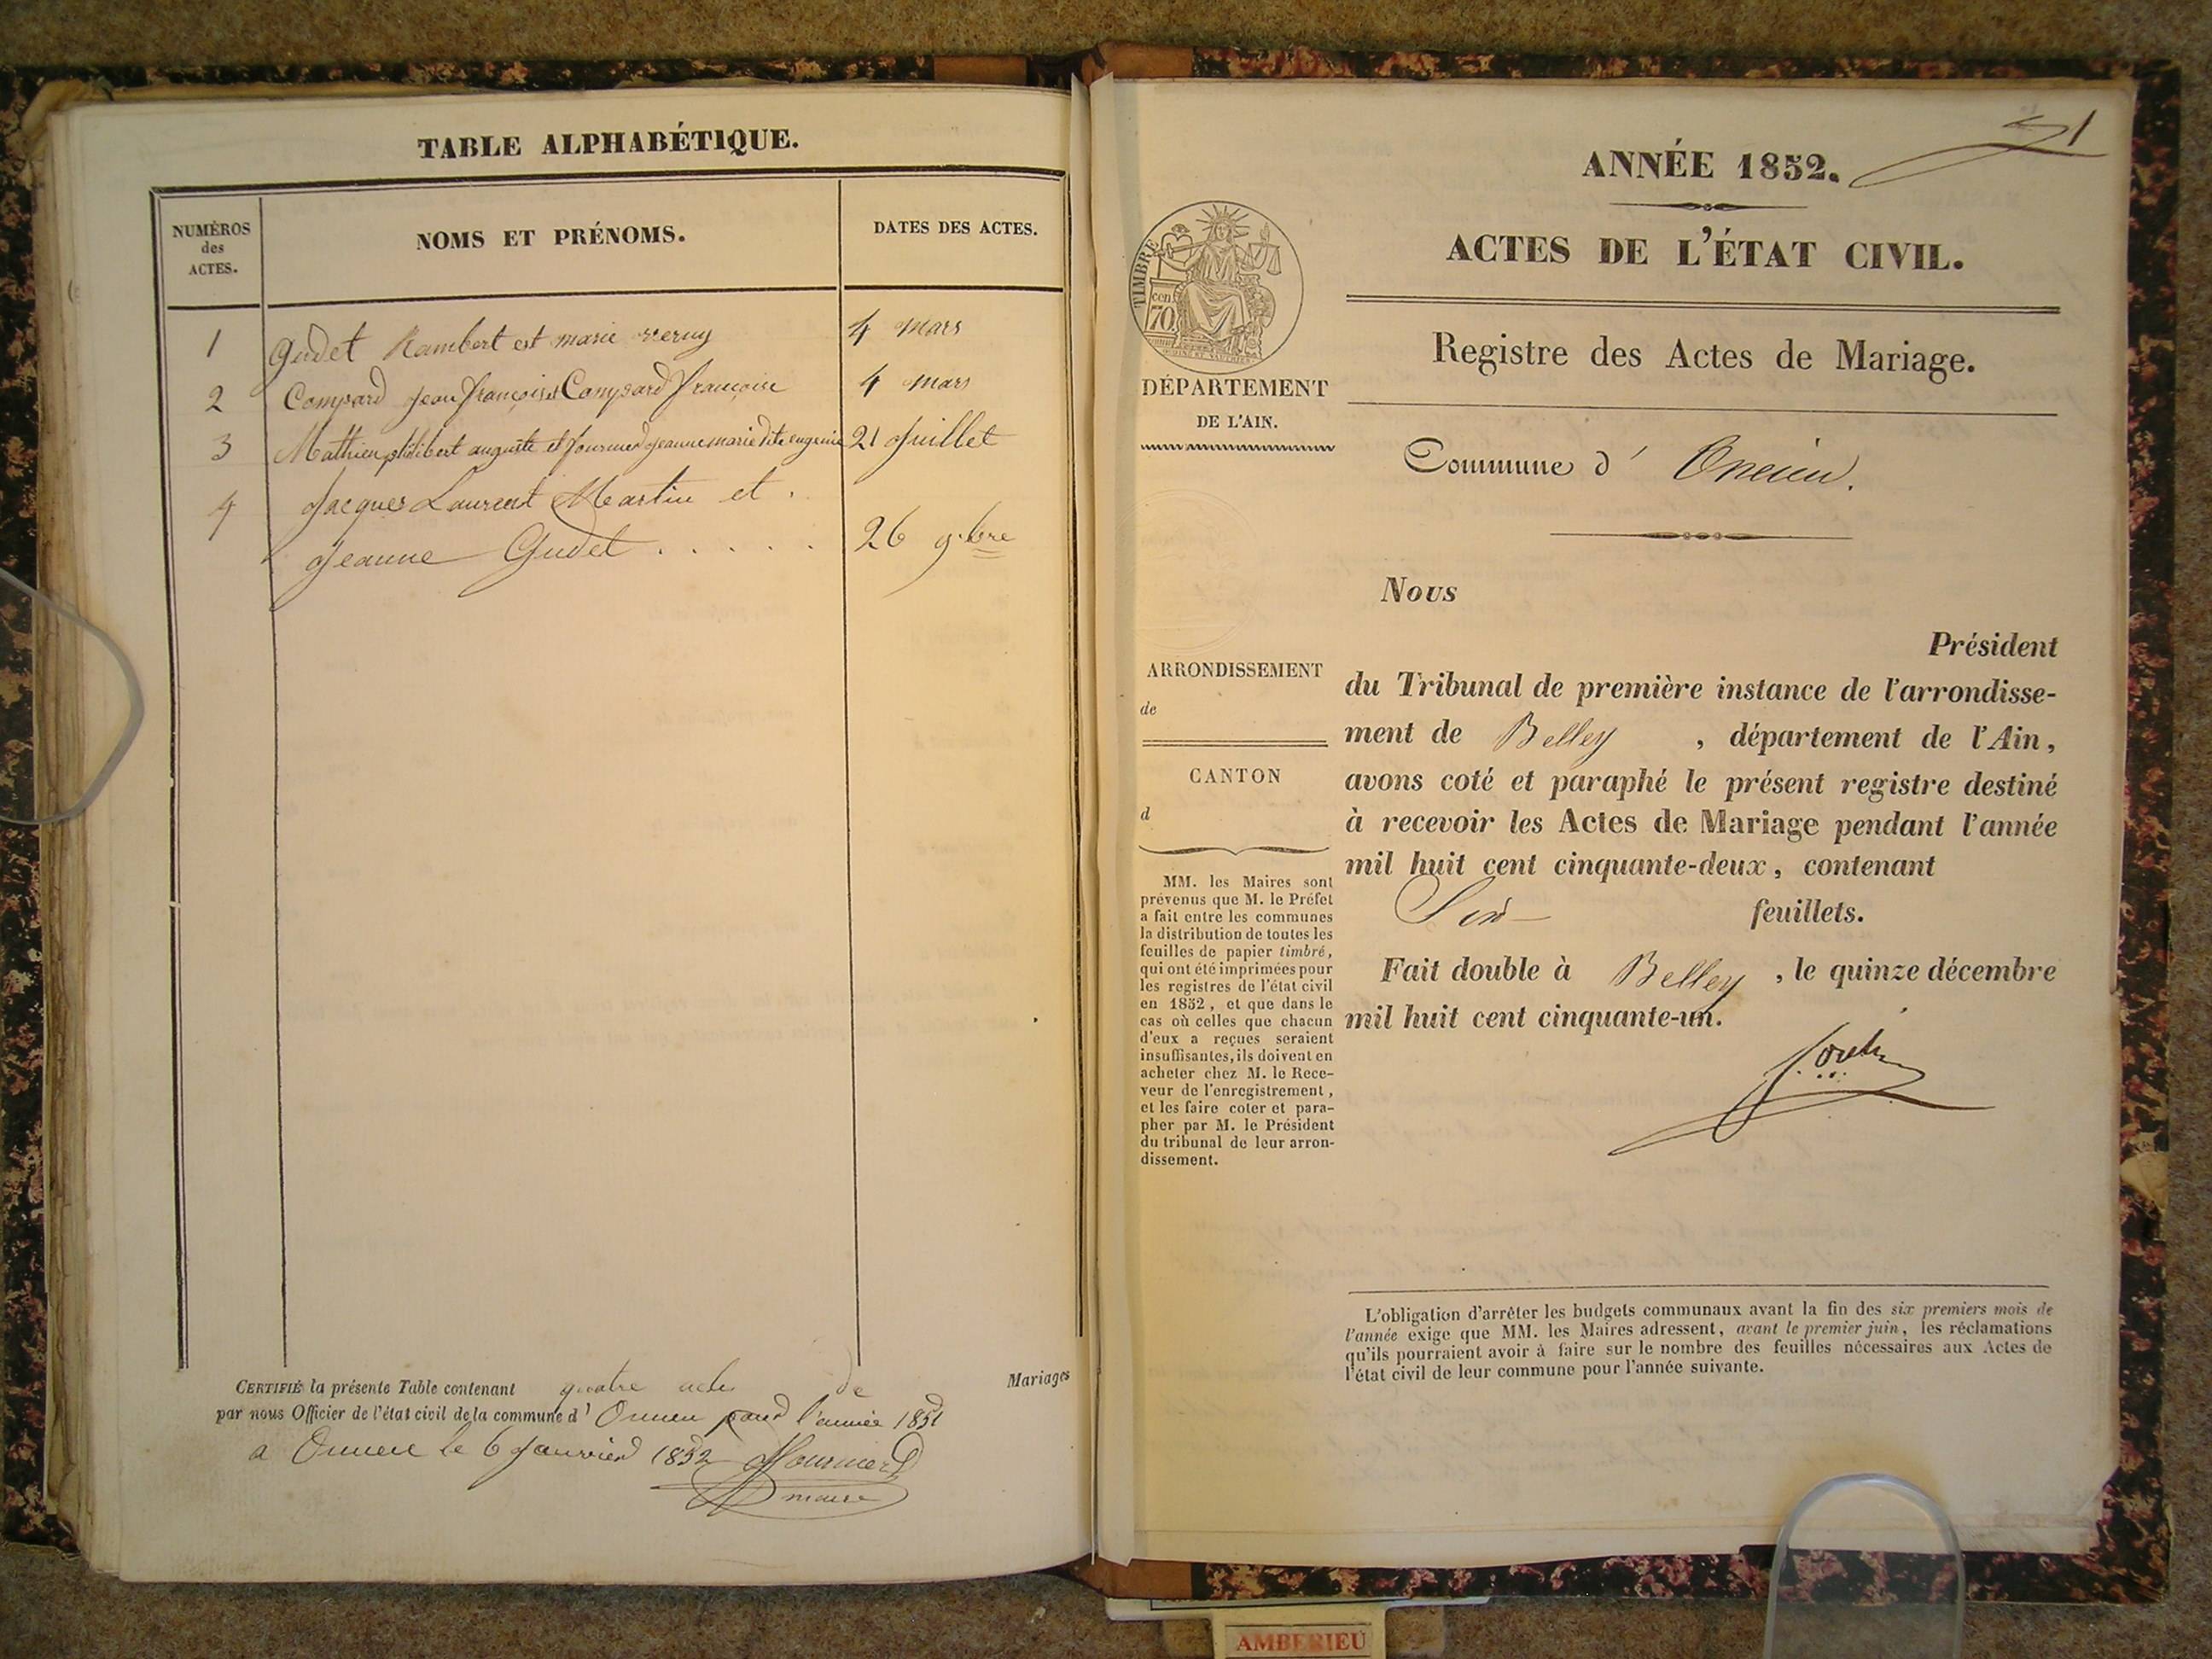 TABLE ALPHABÉTIQUE.
NUMÉROS
des
ACTES.
NOMS ET PRÉNOMS.
DATES DES ACTES.
1 Gudet Rambert et marie verny 4 mars
2 Compard Jean françois et Compard françoise 4 mars
3 Mathieu philibert auguste et fournier jeanne marie dite eugenie 21 Juillet
4 Jacques Laurent Martin et
Jeanne Gudet . . . . . 26 9bre
CERTIFIÉ la présente Table contenant quatre actes de Mariages
par nous Officier de l'état civil de la commune d' Oncieu pour l'année 1851
a Oncieu le 6 Janvier 1852 Fournier
maire
1
ANNÉE 1852.
ACTES DE L'ÉTAT CIVIL.
Registre des Actes de Mariage.
Commune d' Oncieu.
TIMBRE
70
cen
DÉPARTEMENT
DE L'AIN.
ARRONDISSEMENT
de
CANTON
d
MM. les Maires sont
prévenus que M. le Préfet
a fait entre les communes
la distribution de toutes les
feuilles de papier timbré,
qui ont été imprimées pour
les registres de l'état civil
en 1852, et que dans le
cas où celles que chacun
d'eux a reçues seraient
insuffisantes, ils doivent en
acheter chez M. le Rece-
veur de l'enregistrement,
et les faire coter et para-
pher par M. le Président
du tribunal de leur arron-
dissement.
Nous
Président
du Tribunal de première instance de l'arrondisse-
ment de Belley , département de l'Ain,
avons coté et paraphé le présent registre destiné
à recevoir les Actes de Mariage pendant l'année
mil huit cent cinquante-deux, contenant
Six feuillets.
Fait double à Belley , le quinze décembre
mil huit cent cinquante-un.
L'obligation d'arrêter les budgets communaux avant la fin des six premiers mois de
l'année exige que MM. les Maires adressent, avant le premier juin, les réclamations
qu'ils pourraient avoir à faire sur le nombre des feuilles nécessaires aux Actes de
l'état civil de leur commune pour l'année suivante.
AMBERIEU